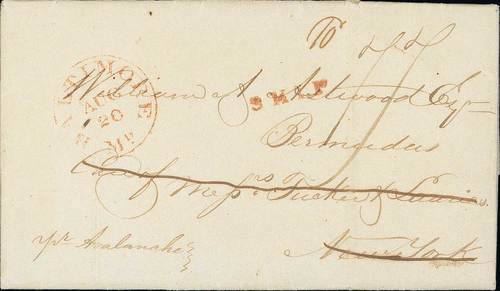 To
BALTIMORE Md.
AUG
20
SHIP
William A Astwood Esq
Bermudas
Care of Messrs Tucker & Lauries
New York
pr Avalanche